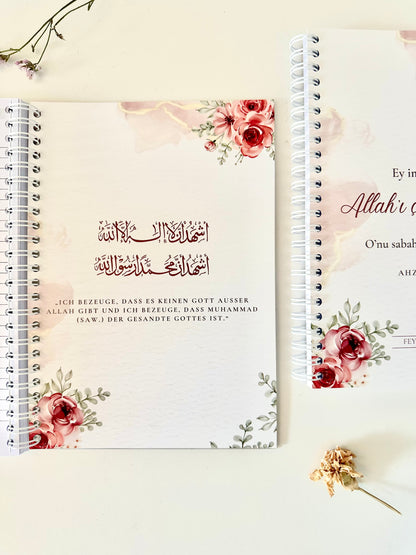 اشهد ان لا اله الا الله
اشهد ان محمدا رسول الله
„ICH BEZEUGE, DASS ES KEINEN GOTT AUSSER
ALLAH GIBT UND ICH BEZEUGE, DASS MUHAMMAD
(SAW.) DER GESANDTE GOTTES IST.“
Ey
Allah'ı
O'nu sabah